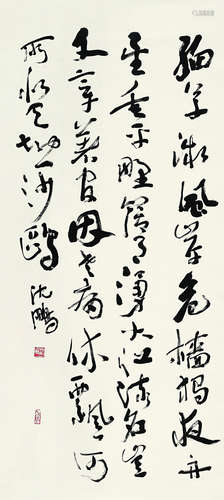 細草微風岸危檣獨夜舟
星垂平野闊月湧大江流名豈
文章著官因老病休飄飄何
所似天地一沙鷗
沈鵬